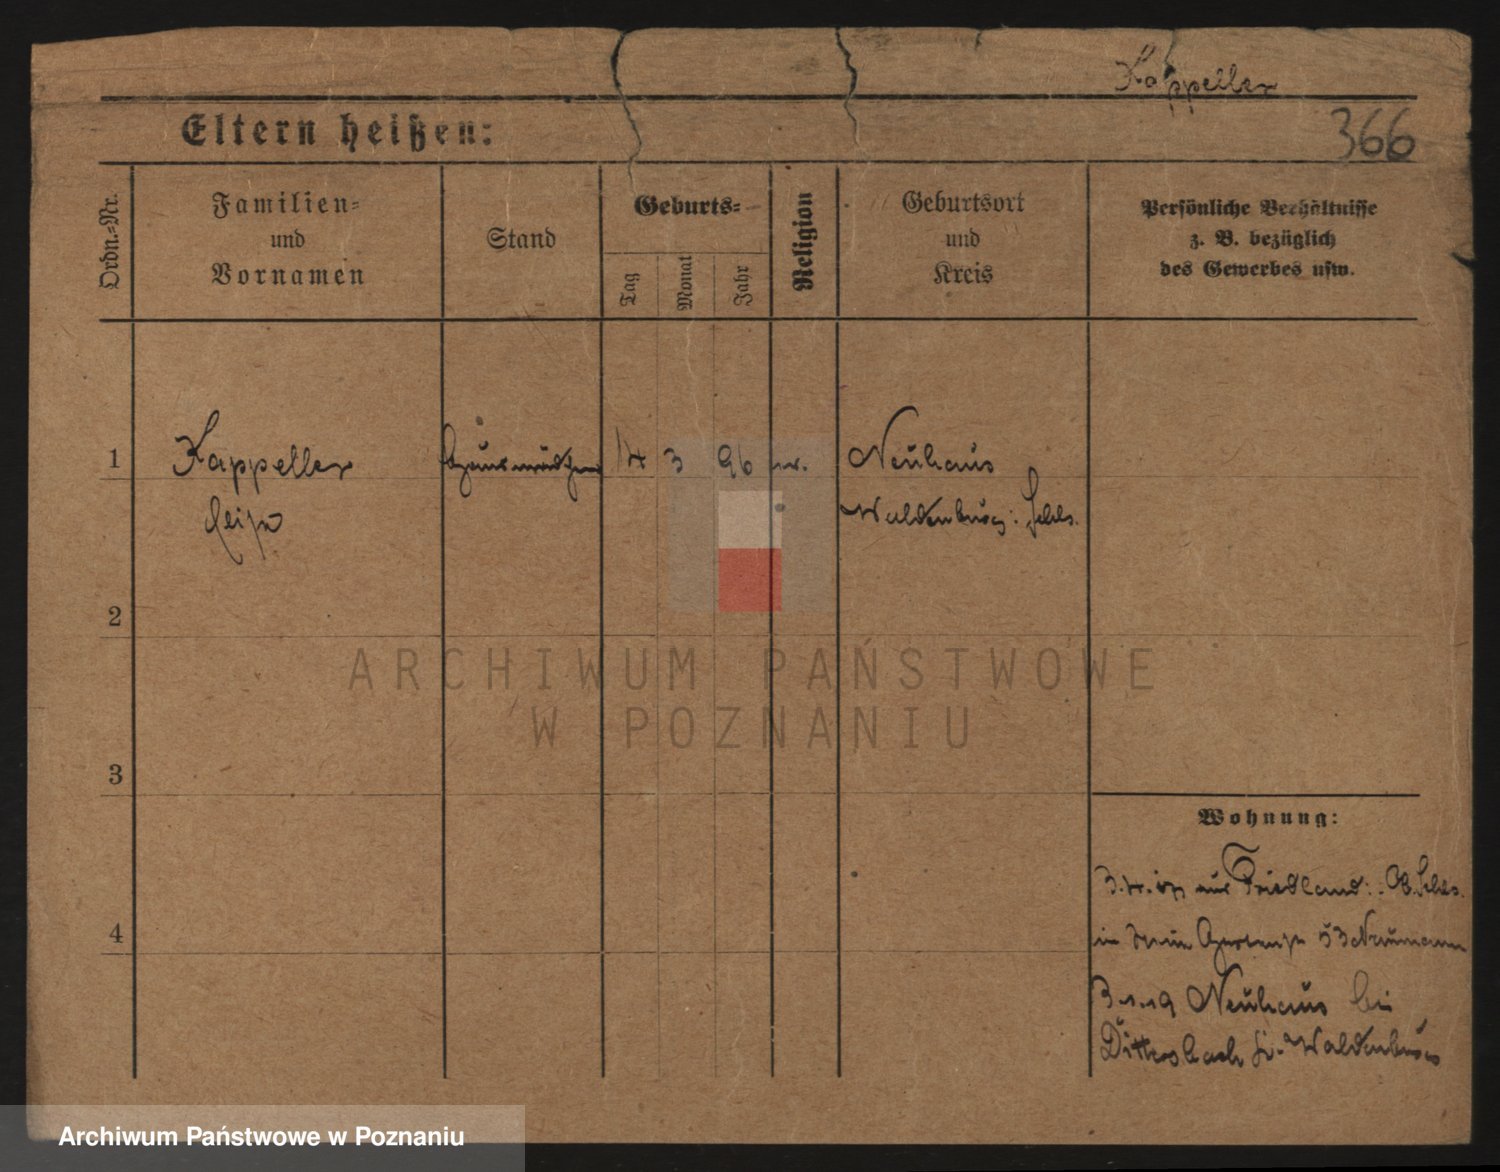 Kappeller
Eltern heißen:
366
Ordn.-Nr.
Familien-
und
Vornamen
Stand
Geburts-
Tag
Monat
Jahr
Religion
Geburtsort
und
Kreis
Persönliche Verhältnisse
z. B. bezüglich
des Gewerbes usw.
1
Kappeller
Hausmädchen
14
3
96
Neuhaus
Waldenburg: Schls.
2
ARCHIWUM PAŃSTWOWE
W POZNANIU
3
Wohnung:
aus Friedland: Ob. Schls.
4
in 53 Naumann
Neuhaus bei
Dittersbach Waldenburg
Archiwum Państwowe w Poznaniu